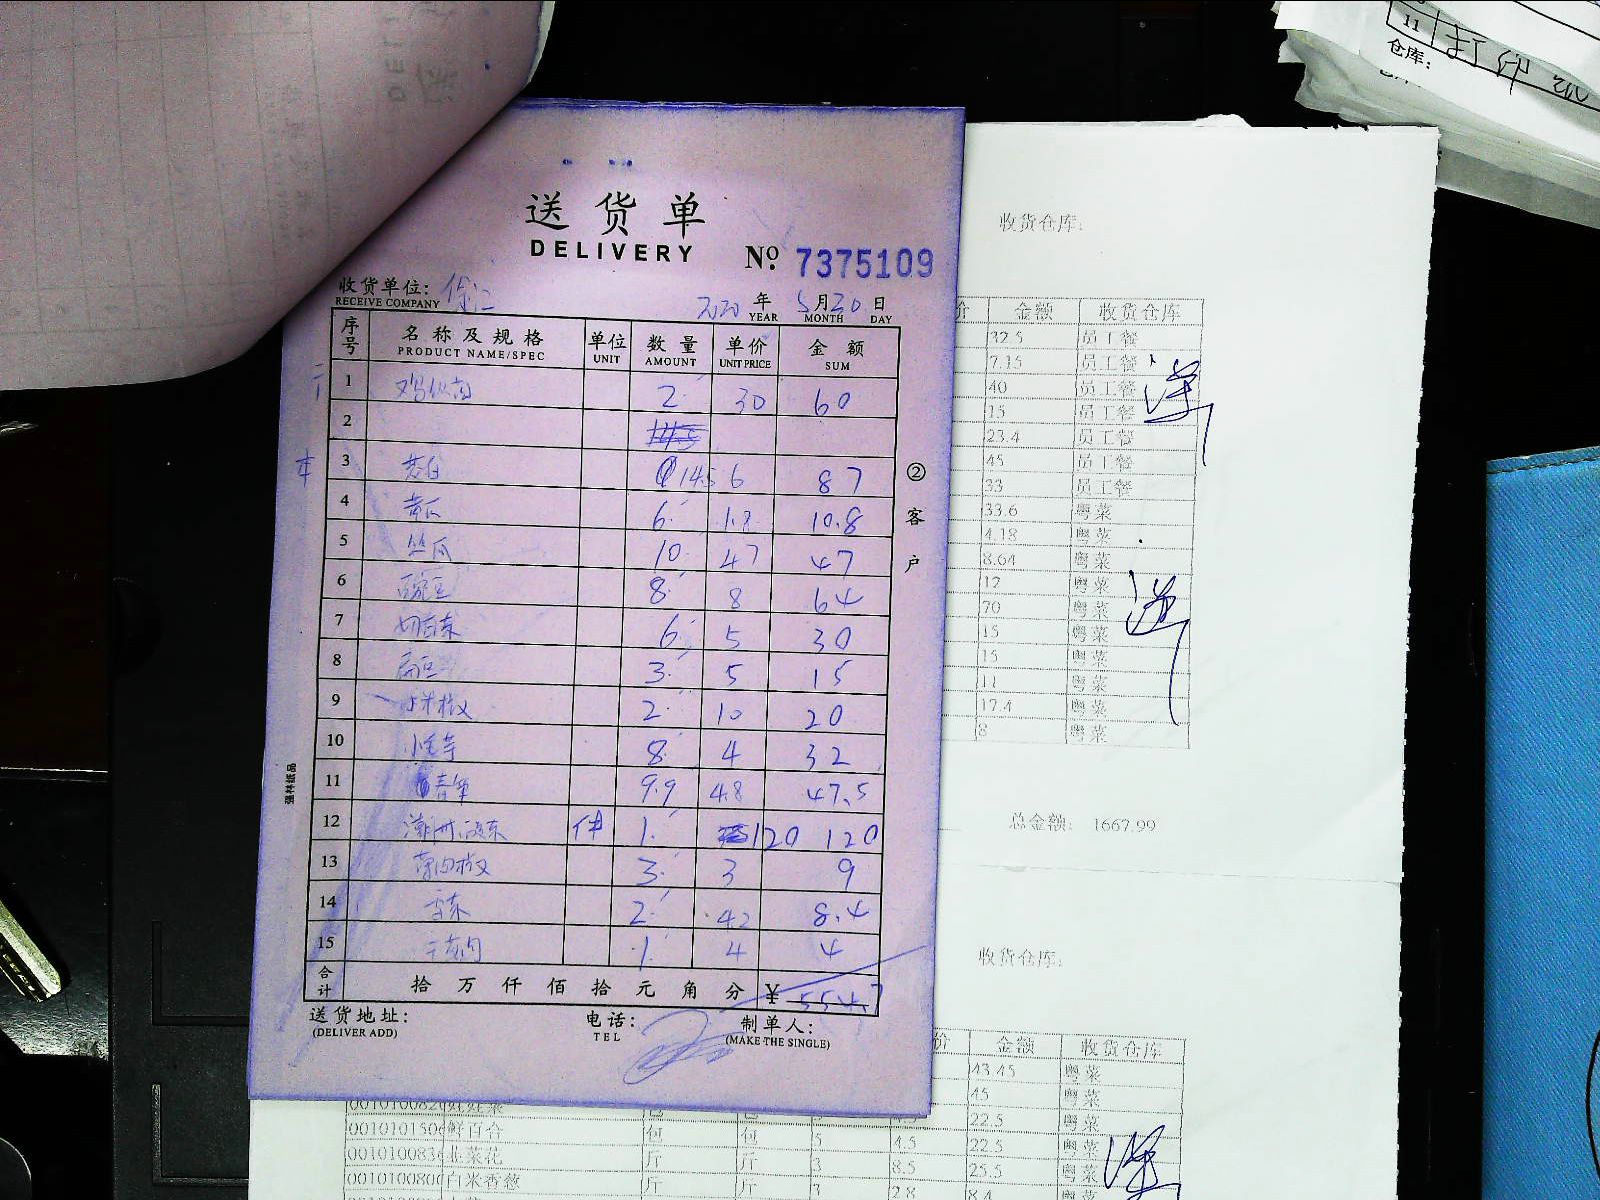 11 打印纸
仓库:
送货单
DELIVERY
№ 7375109
收货单位:
RECEIVE COMPANY
2020 年 5月20日
YEAR MONTH DAY
序号 名称及规格 单位 数量 单价 金额
PRODUCT NAME/SPEC UNIT AMOUNT UNIT PRICE SUM
1 2 30 60
2
3 茭白 14.5 6 87
4 黄瓜 6 1.8 10.8
5 丝瓜 10 4.7 47
6 豌豆 8 8 64
7 6 5 30
8 扁豆 3 5 15
9 小米椒 2 10 20
10 小毛芋 8 4 32
11 9.9 4.8 47.5
12 件 1 120 120
13 薄肉椒 3 3 9
14 2 4.2 8.4
15 1 4 4
合计 拾万仟佰拾元角分 ¥ 554.7
送货地址: 电话: 制单人:
(DELIVER ADD) TEL (MAKE THE SINGLE)
②客户
强林纸品
收货仓库:
价 金额 收货仓库
32.5 员工餐
7.15 员工餐
40 员工餐
15 员工餐
23.4 员工餐
45 员工餐
33 员工餐
33.6 粤菜
4.18 粤菜
8.64 粤菜
12 粤菜
70 粤菜
15 粤菜
15 粤菜
11 粤菜
17.4 粤菜
8 粤菜
送
送
总金额: 1667.99
收货仓库:
价 金额 收货仓库
43.45 粤菜
45 粤菜
22.5 粤菜
鲜百合 包 包 5 4.5 22.5 粤菜
北菜花 斤 斤 3 8.5 25.5 粤菜
白米香葱 斤 斤 3 2.8 8.4 粤菜